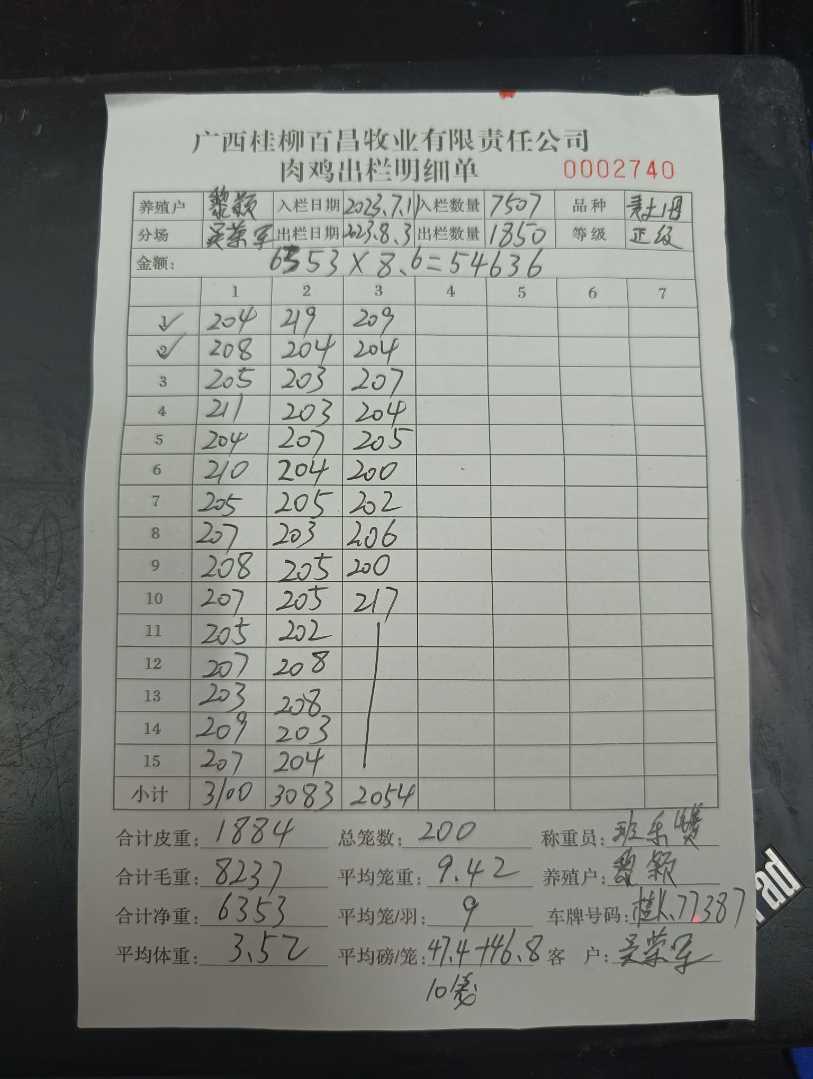 广西桂柳百昌牧业有限责任公司
肉鸡出栏明细单 0002740
养殖户 黎颖 入栏日期 2023.7.11 入栏数量 7507 品种
分场 吴荣军 出栏日期 2023.8.3 出栏数量 1850 等级 正级
金额: 6353×8.6=54636
1 2 3 4 5 6 7
1 204 219 209
2 208 204 204
3 205 203 207
4 211 203 204
5 204 207 205
6 210 204 200
7 205 205 202
8 207 203 206
9 208 205 200
10 207 205 217
11 205 202
12 207 208
13 203 208
14 209 203
15 207 204
小计 3100 3083 2054
合计皮重: 1884 总笼数: 200 称重员:
合计毛重: 8237 平均笼重: 9.42 养殖户: 黎颖
合计净重: 6353 平均笼/羽: 9 车牌号码: 77387
平均体重: 3.52 平均磅/笼: 47.4+46.8 客 户: 吴荣军
rad